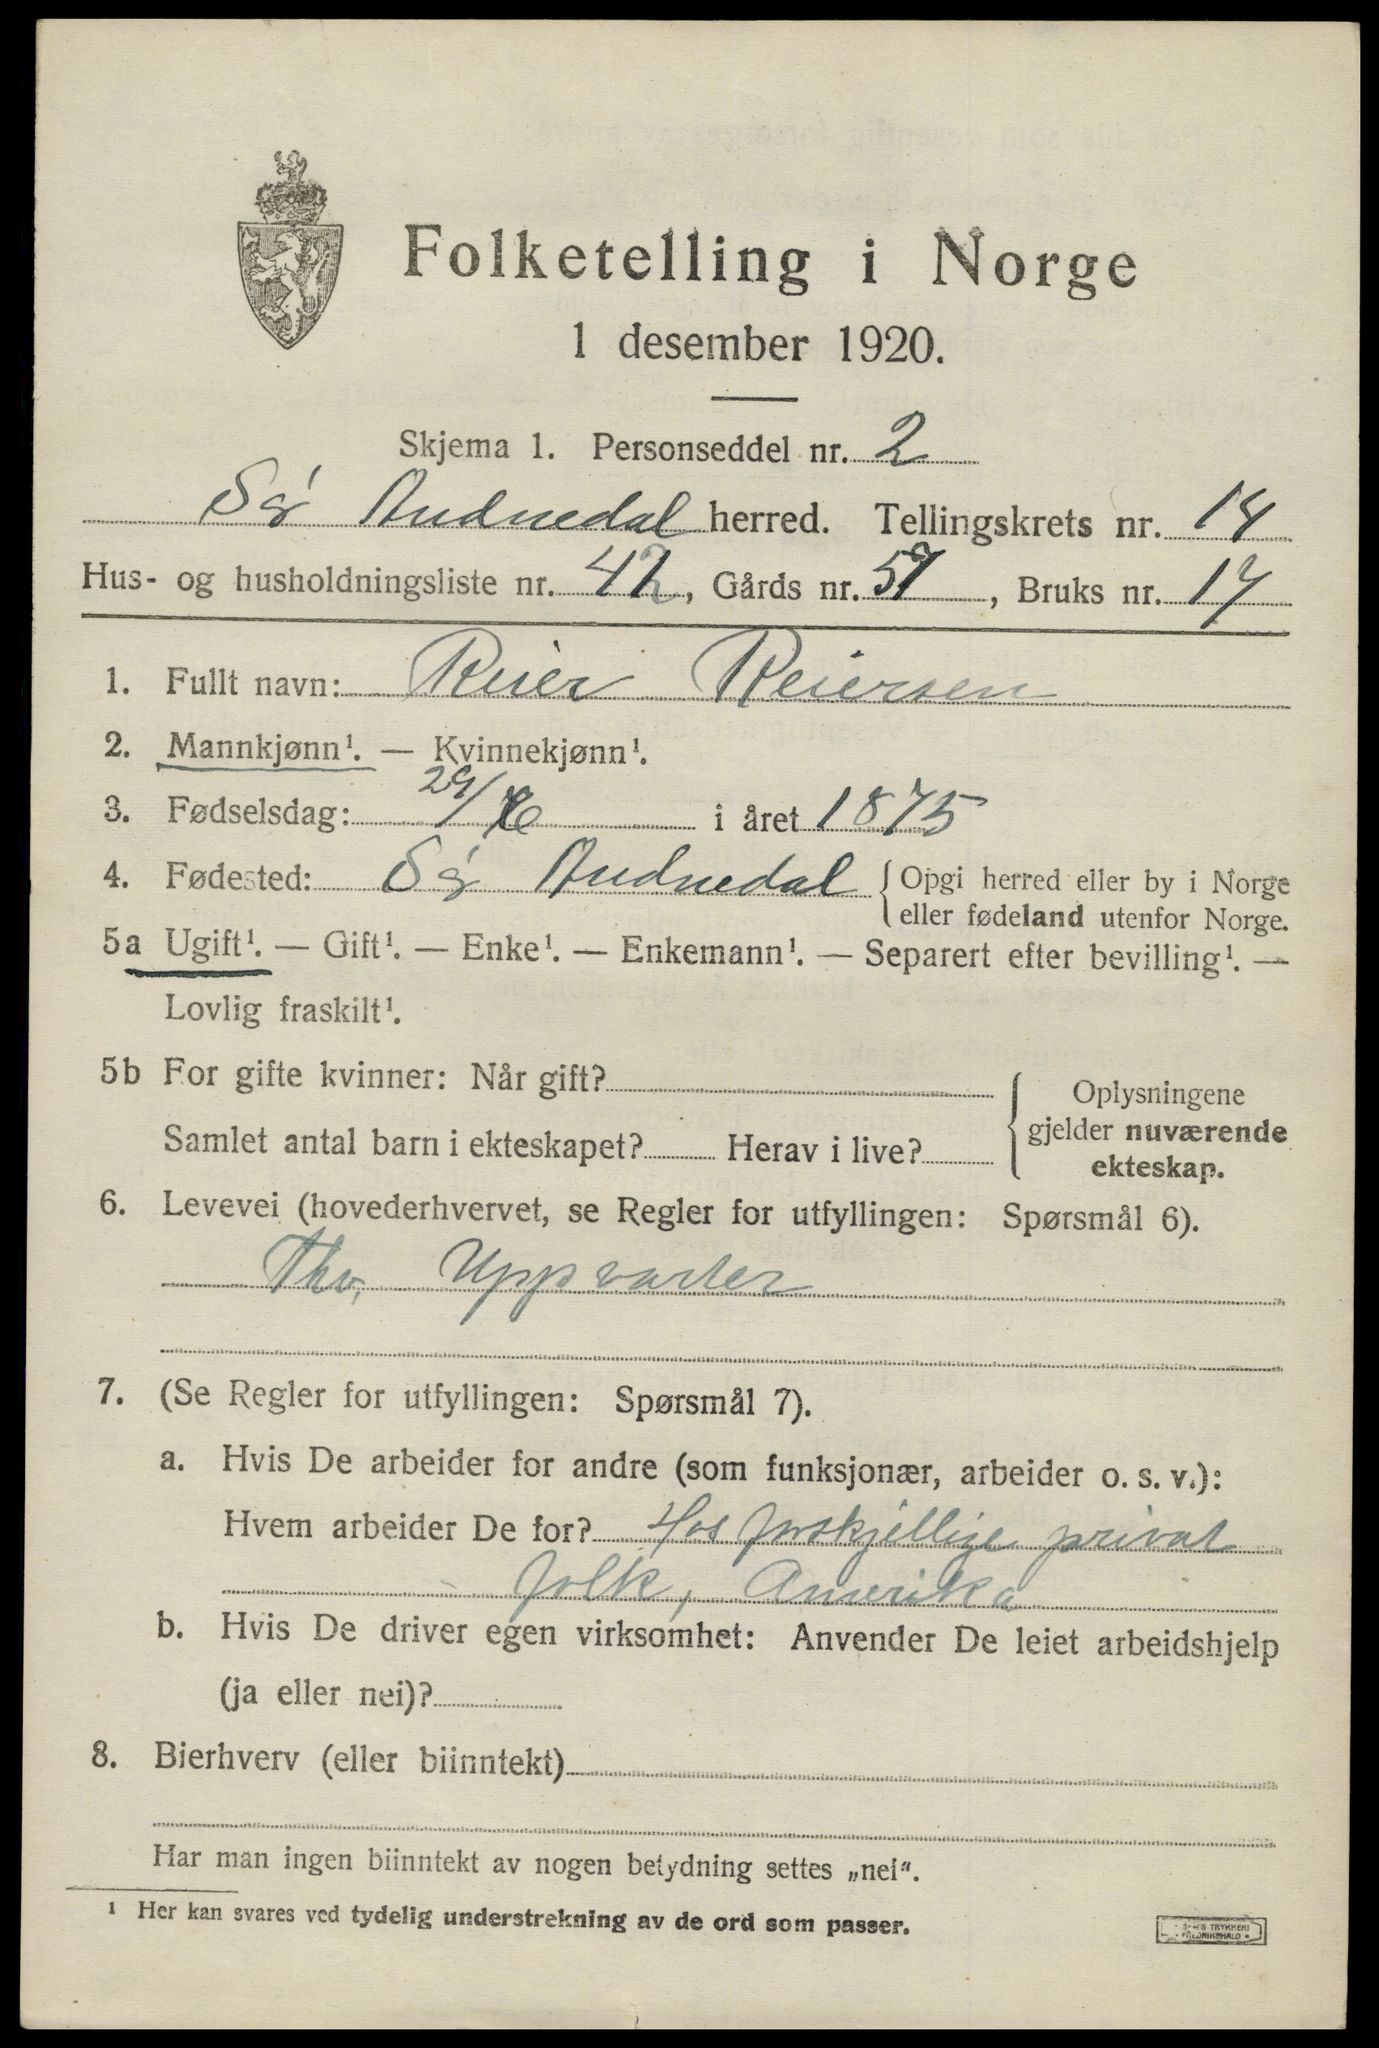 Folketelling i Norge
1 desember 1920.
Skjema 1. Personseddel nr. 2
Sø Audnedal herred. Tellingskrets nr. 14
Hus- og husholdningsliste nr. 42, Gårds nr. 57, Bruks nr. 17
1. Fullt navn: Reier Reiersen
2. Mannkjønn¹. — Kvinnekjønn¹.
3. Fødselsdag: 29/ i året 1875
4. Fødested: Sø Audnedal { Opgi herred eller by i Norge
eller fødeland utenfor Norge.
5a Ugift¹. — Gift¹. — Enke¹. — Enkemann¹. — Separert efter bevilling¹. —
Lovlig fraskilt¹.
5b For gifte kvinner: Når gift?
Samlet antal barn i ekteskapet? Herav i live?
{ Oplysningene
gjelder nuværende
ekteskap.
6. Levevei (hovederhvervet, se Regler for utfyllingen: Spørsmål 6).
Uppvarter
7. (Se Regler for utfyllingen: Spørsmål 7).
a. Hvis De arbeider for andre (som funksjonær, arbeider o. s. v.):
Hvem arbeider De for? Hos forskjellige privat
folk, Amerika
b. Hvis De driver egen virksomhet: Anvender De leiet arbeidshjelp
(ja eller nei)?
8. Bierhverv (eller biinntekt)
Har man ingen biinntekt av nogen betydning settes „nei“.
¹ Her kan svares ved tydelig understrekning av de ord som passer.
TRYKKERI
FREDRIKSHALD